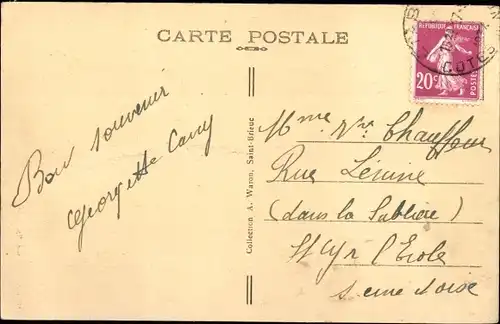 CARTE POSTALE
RÉPUBLIQUE FRANÇAISE
20c
POSTES
COTES
Bon souvenir
Georgette Cany
Collection A. Waron, Saint-Brieuc
Mme Vve Chauffour
Rue Lénine
(dans la Sablière)
St Cyr l'Ecole
Seine et oise